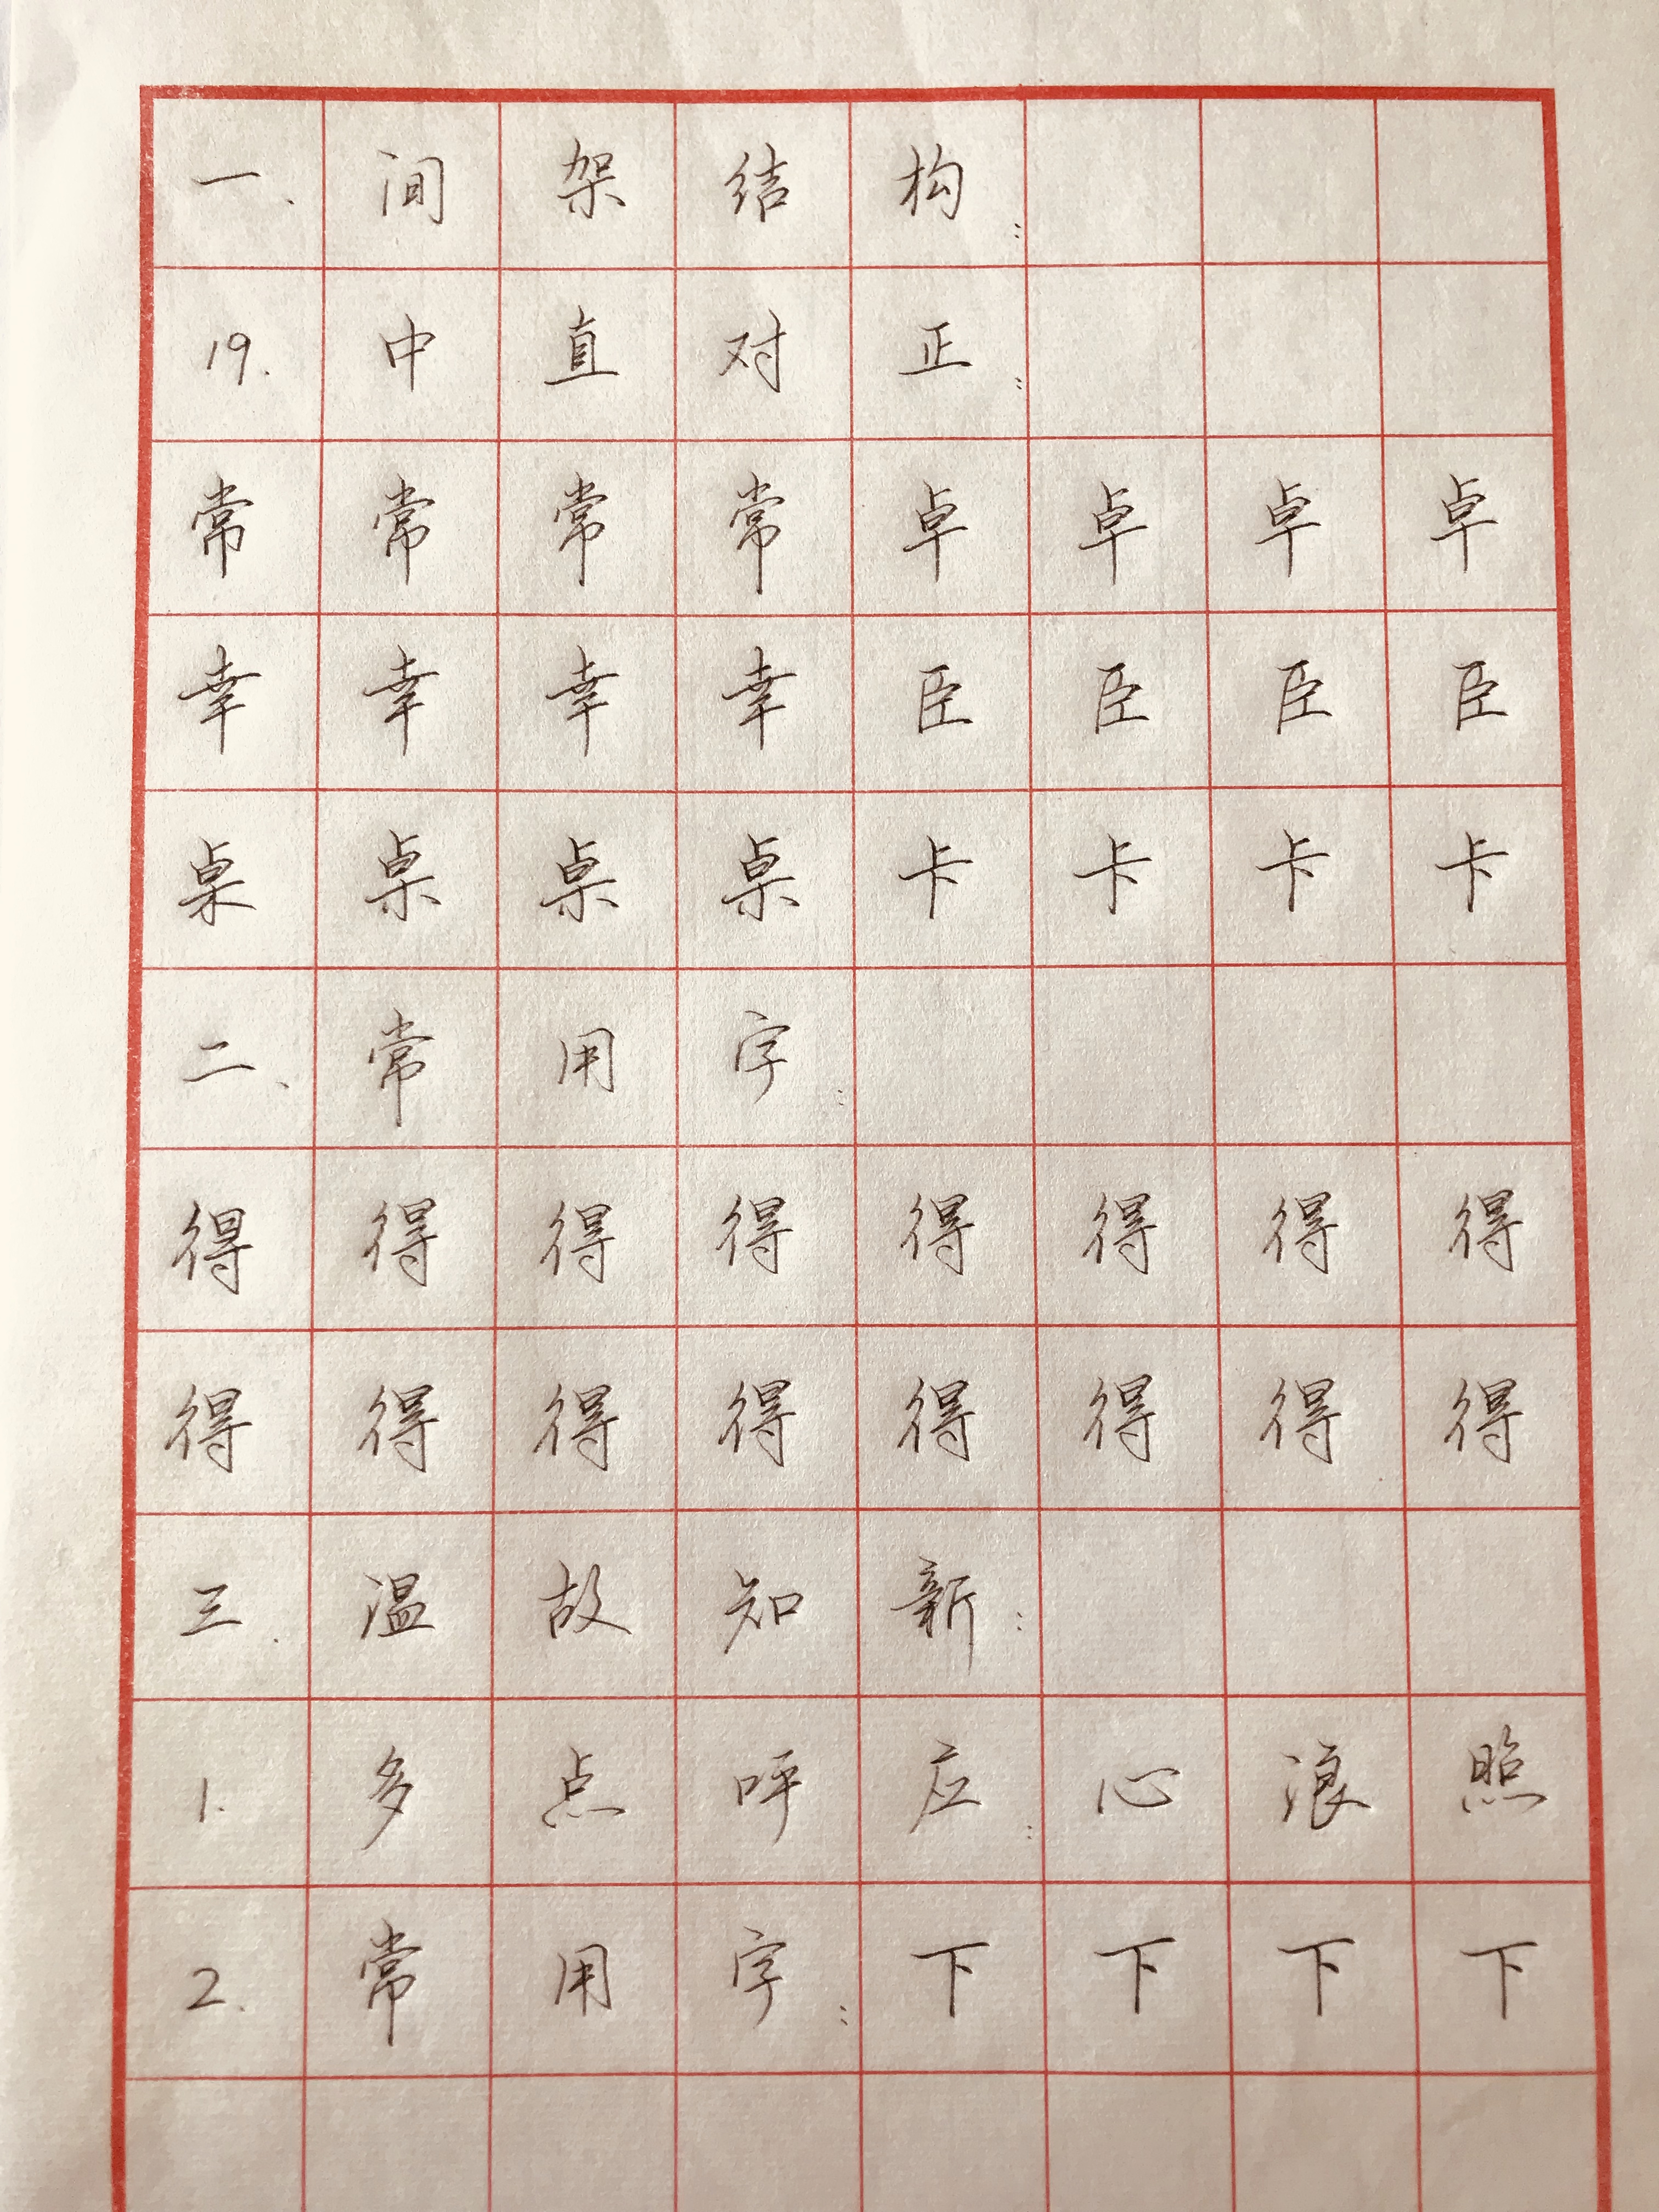 一、间架结构:
19.中直对正:
常常常常卓卓卓卓
幸幸幸幸臣臣臣臣
桌桌桌桌卡卡卡卡
二、常用字:
得得得得得得得得
得得得得得得得得
三.温故知新:
1.多点呼应:心浪照
2.常用字:下下下下